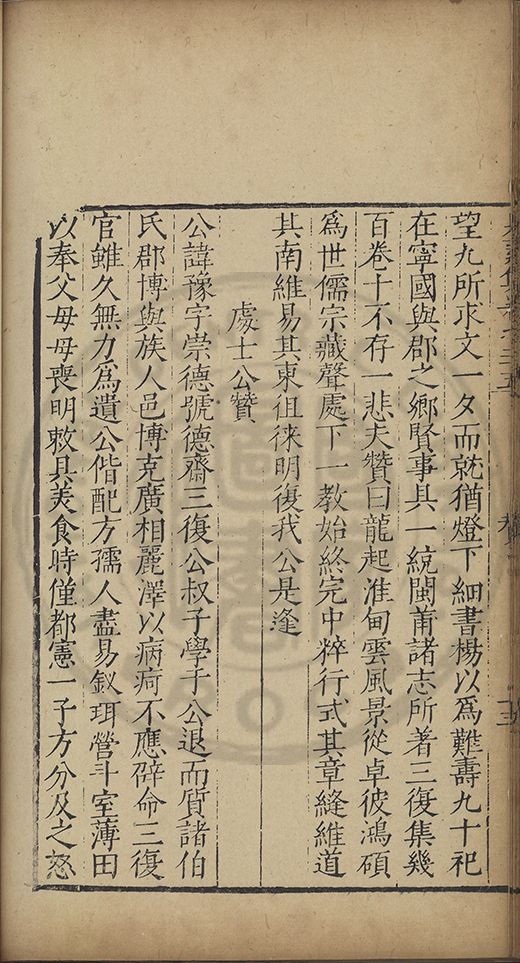 望九所求文一夕而就猶燈下細書楊以為難壽九十祀
在寧國與郡之鄉賢事具一統閩莆諸志所著三復集幾
百卷十不存一悲夫贊曰龍起淮甸雲風景從卓彼鴻碩
為世儒宗藏聲處下一教始終完中粹行式其章縫維道
其南維易其東徂徠明復我公是逢
處士公贊
公諱豫字崇德號德齋三復公叔子學于公退而質諸伯
氏郡博與族人邑博克廣相麗澤以病疴不應辟命三復
官雖久無力為遺公偕配方孺人盡易釵珥營斗室薄田
以奉父母母喪明敕具美食時僮都憲一子方分及之怒